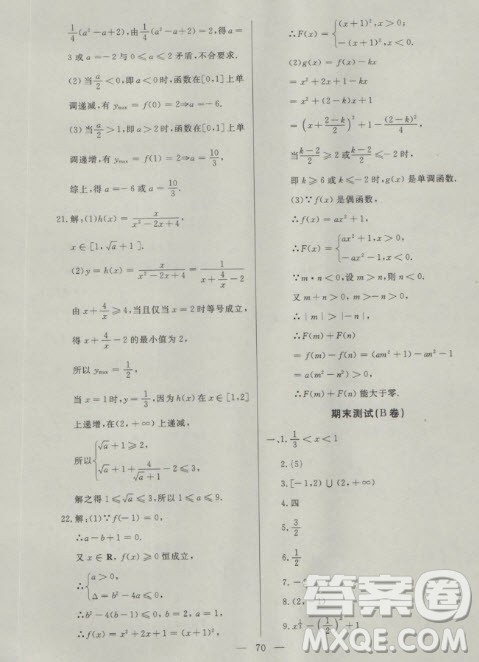 $\frac{1}{4}(a^2-a+2)$，由$\frac{1}{4}(a^2-a+2)=2$，得$a=$
3或$a=-2$与$0\leqslant a\leqslant 2$矛盾，不合要求.
(2)当$\frac{a}{2}<0$，即$a<0$时，函数在[0,1]上单
调递减，有$y_{max}=f(0)=2\Rightarrow a=-6$.
(3)当$\frac{a}{2}>1$，即$a>2$时，函数在[0,1]上单
调递增，有$y_{max}=f(1)=2\Rightarrow a=\frac{10}{3}$.
综上，得$a=-6$或$a=\frac{10}{3}$.
21.解：(1)$h(x)=\frac{x}{x^2-2x+4}$，
$x\in[1,\sqrt{a}+1]$.
(2)$y=h(x)=\frac{x}{x^2-2x+4}=\frac{1}{x+\frac{4}{x}-2}$
由$x+\frac{4}{x}\geqslant 4$，当且仅当$x=2$时等号成立，
得$x+\frac{4}{x}-2$的最小值为2.
所以$y_{max}=\frac{1}{2}$，
当$x=1$时，$y=\frac{1}{3}$，因为$h(x)$在[1,2]
上递增，在$(2,+\infty)$上递减，
所以$\begin{cases}\sqrt{a}+1\geqslant 2,\\ \sqrt{a}+1+\frac{4}{\sqrt{a}+1}-2\leqslant 3,\end{cases}$
解之得$1\leqslant\sqrt{a}\leqslant 3$，所以$1\leqslant a\leqslant 9$.
22.解：(1)∵$f(-1)=0$，
∴$a-b+1=0$.
又∵$x\in$ R，$f(x)\geqslant 0$恒成立，
∴$\begin{cases}a>0,\\ \Delta=b^2-4a\leqslant 0,\end{cases}$
∴$b^2-4(b-1)\leqslant 0$，∴$b=2,a=1$.
∴$f(x)=x^2+2x+1=(x+1)^2$.
∴$F(x)=\begin{cases}(x+1)^2,x>0\\ -(x+1)^2,x<0\end{cases}$
(2)$g(x)=f(x)-kx$
$=x^2+2x+1-kx$
$=\left(x+\frac{2-k}{2}\right)^2+1-\frac{(2-k)^2}{4}$
当$\frac{k-2}{2}\geqslant 2$或$\frac{k-2}{2}\leqslant -2$时，
即$k\geqslant 6$或$k\leqslant -2$时，$g(x)$是单调函数.
(3)∵$f(x)$是偶函数，
∴$f(x)=ax^2+1$，
∴$F(x)=\begin{cases}ax^2+1,x>0\\ -ax^2-1,x<0\end{cases}$
∵$m\cdot n<0$，设$m>n$，则$n<0$.
又$m+n>0$，$m>-n>0$，
∴$|m|>|-n|$，
∴$F(m)+F(n)$
$=f(m)-f(n)=(am^2+1)-an^2-1$
$=a(m^2-n^2)>0$，
∴$F(m)+F(n)$能大于零.
期末测试(B卷)
一、1.$\frac{1}{3}<x<1$
2.{5}
3.$[-1,2)\cup(2,+\infty)$
4.四
5.$\frac{3}{2}$
6.$\frac{1}{2}$
7.$(-\infty,$
8.$(2,$
9.
— 70 —
答案圈
MXQE.COM